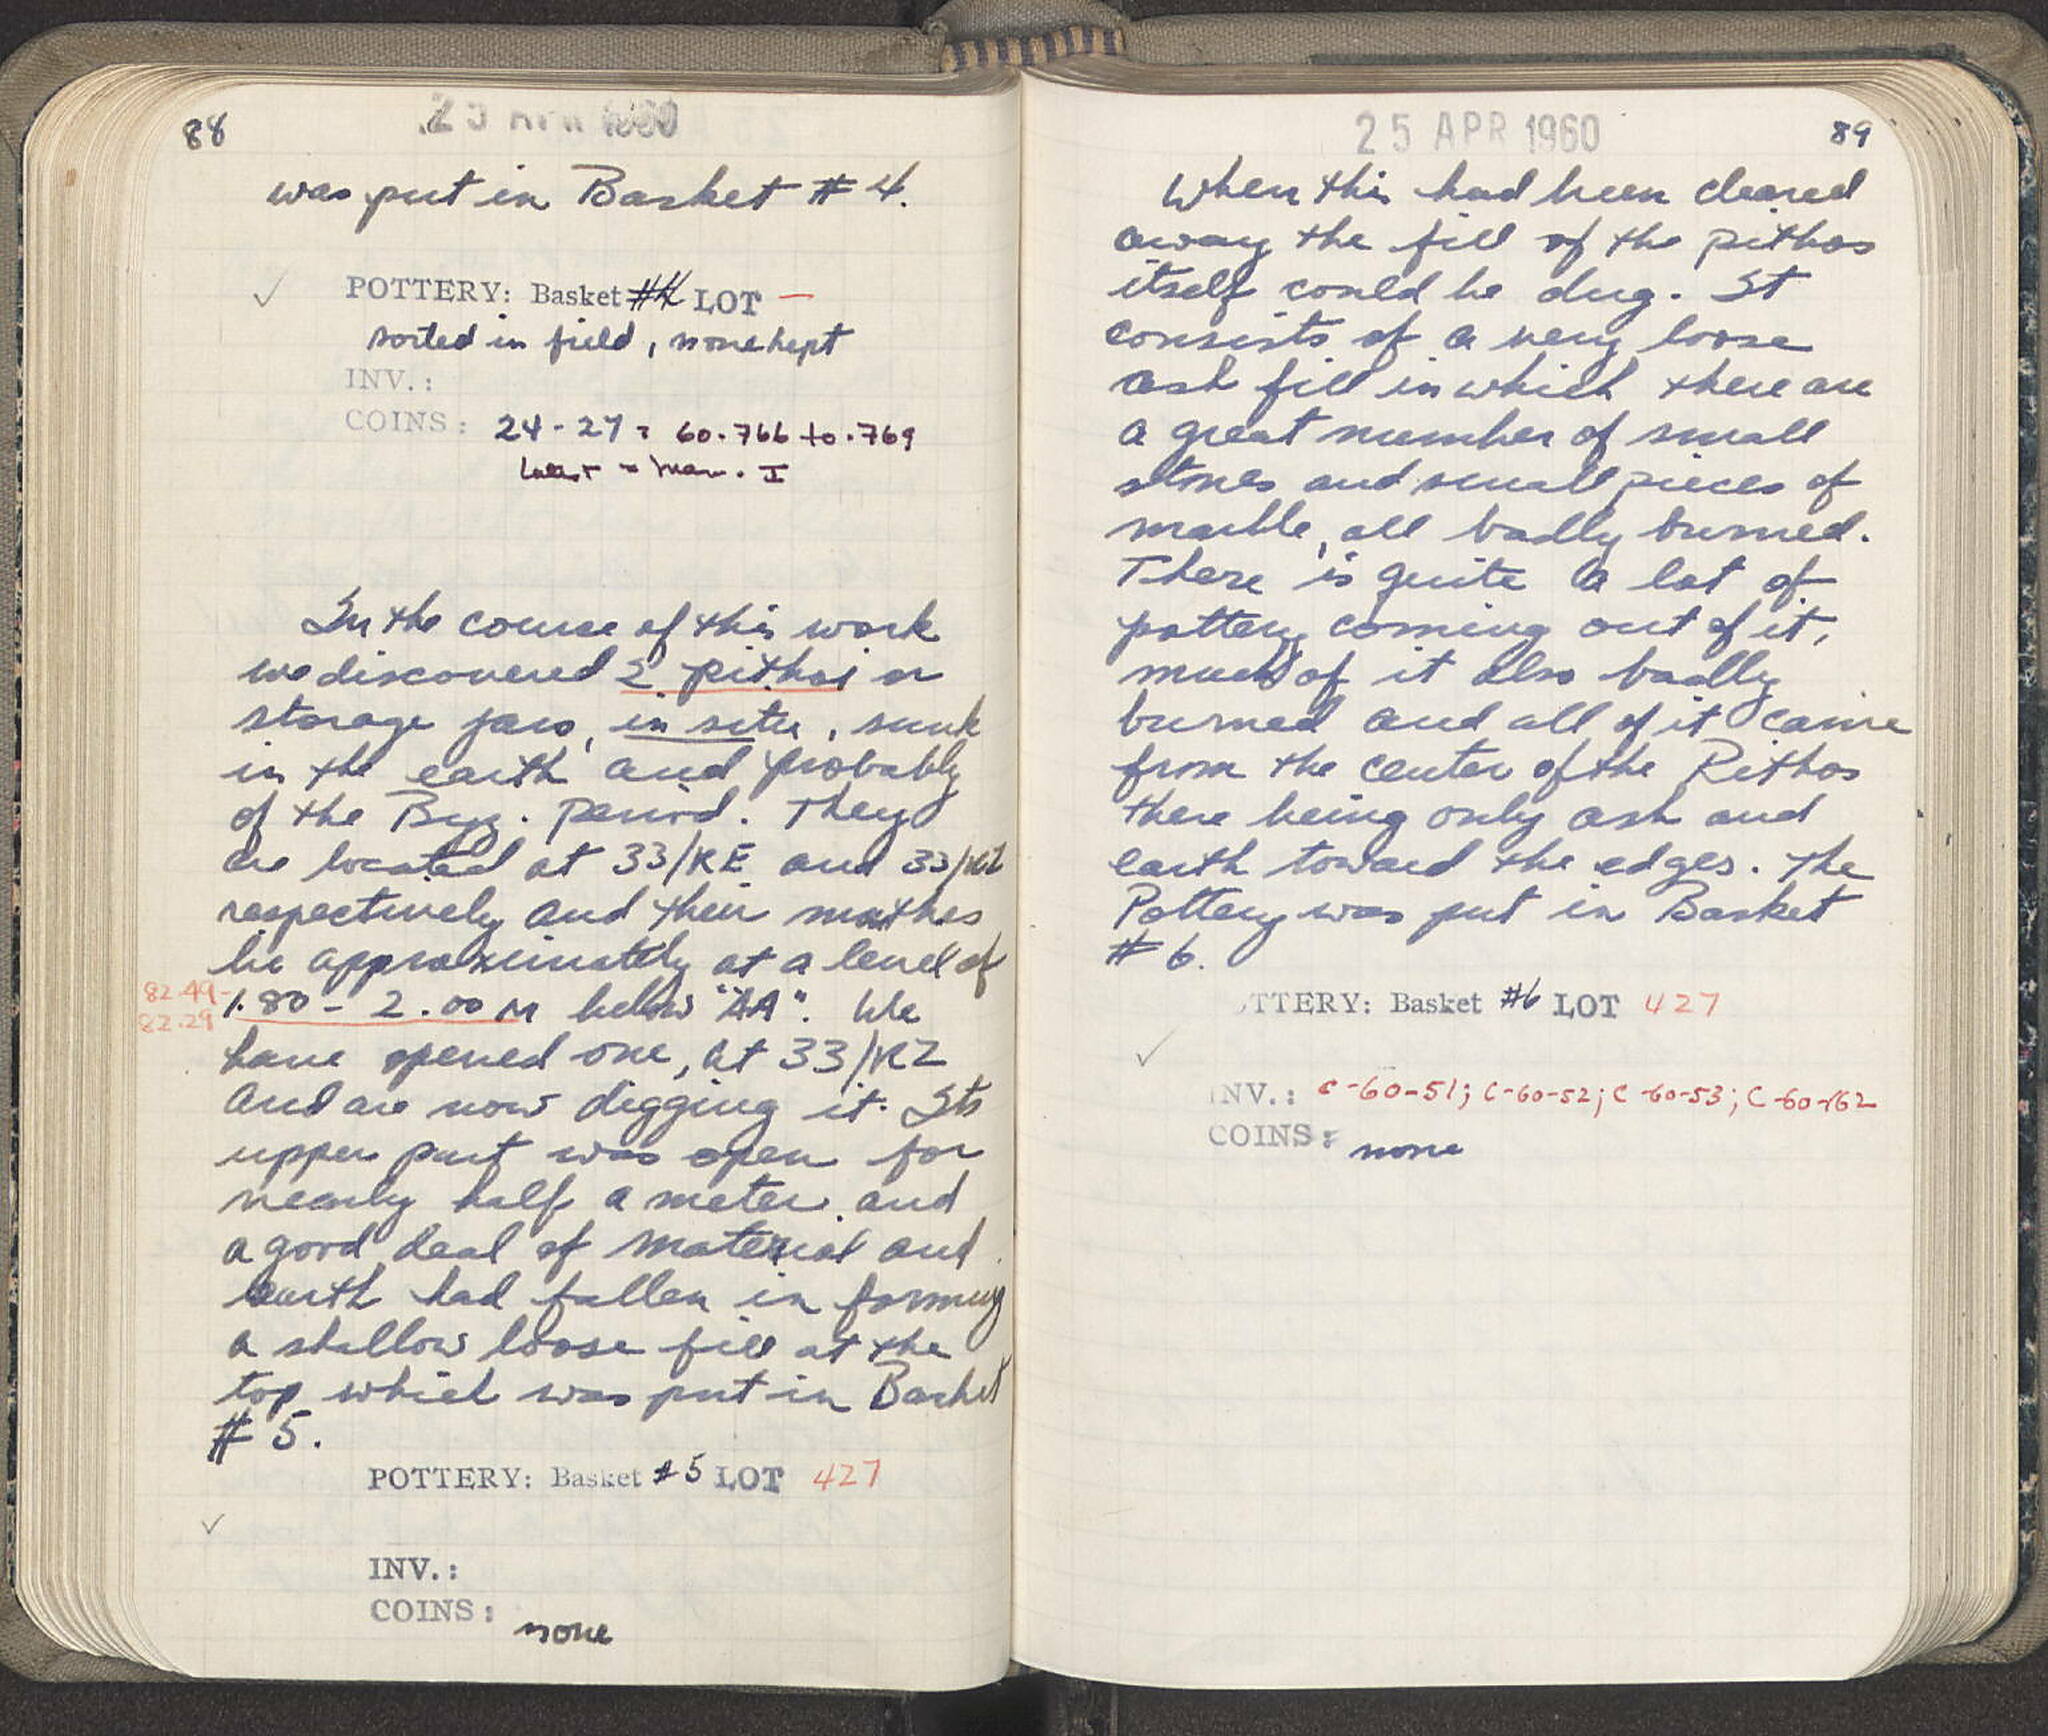 88
25 APR 1960
was put in Basket # 4.
POTTERY: Basket #4 LOT —
sorted in field, none kept
INV.:
COINS: 24-27 = 60.766 to .769
latest = Man. I
In the course of this work
we discovered 2 pithoi or
storage jars, in situ, sunk
in the earth and probably
of the Byz. period. They
are located at 33/KE and 33/KZ
respectively and their mouths
lie approximately at a level of
82.49-
82.29
1.80 - 2.00 M below "AA". We
have opened one, at 33/KZ
and are now digging it. Its
upper part was open for
nearly half a meter and
a good deal of material and
earth had fallen in forming
a shallow loose fill at the
top which was put in Basket
# 5.
POTTERY: Basket #5 LOT 427
INV.:
COINS: none
25 APR 1960
89
When this had been cleared
away the fill of the pithos
itself could be dug. It
consists of a very loose
ash fill in which there are
a great number of small
stones and small pieces of
marble, all badly burned.
There is quite a lot of
pottery coming out of it,
much of it also badly
burned and all of it came
from the center of the Pithos
there being only ash and
earth toward the edges. The
Pottery was put in Basket
# 6.
TTERY: Basket #6 LOT 427
INV.: C-60-51; C-60-52; C-60-53; C-60-162
COINS: none